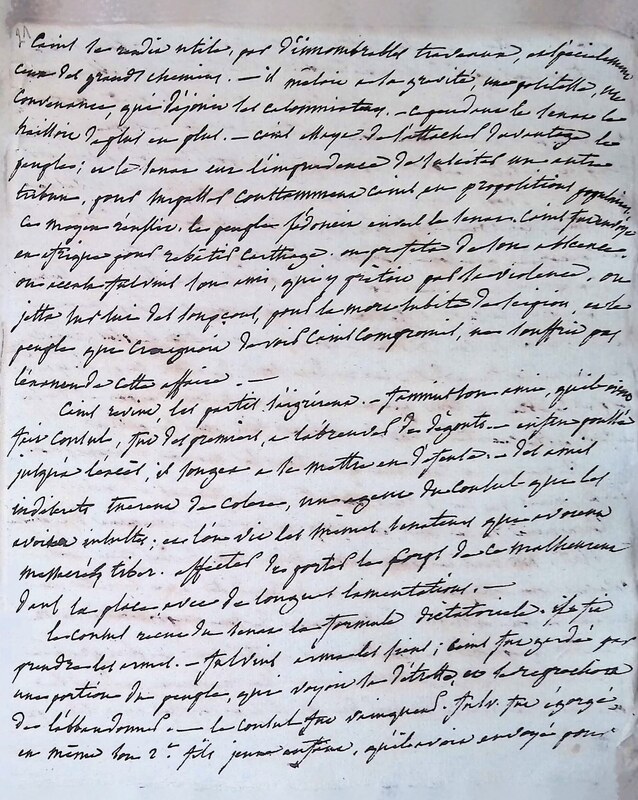 21
Caius se rendit utile, par d'innombrables travaux, et spécialement
ceux des grands chemins. — il mêloit a la gravité, une politesse, une
convenance, qui déjouoit les calomniateurs. — cependant le senat le
haissoit de plus en plus. — Caius essaye de s'attacher davantage le
peuple; et le senat eut l'imprudence de susciter un autre
tribun, pour surpasser constamment Caius, en propositions populaires.
ce moyen réussit. le peuple s'adoucit envers le senat. Caius fut envoyé
en afrique pour rebatir Carthage. on profita de son absence.
on accusa fulvius son ami, qui y prétoit par sa violence. on
jetta sur lui des soupçons, pour la mort subite de scipion, et le
peuple qui craignoit de voir Caius compromis, ne souffrit pas
l'examen de cette affaire. —
Caius revint, les partis s'aigrirent. — fannius son ami, qu'il avoit
fait consul, fut des premiers, a l'abreuver de dégouts. — enfin poussé
jusqu'à l'excès, il songea a se mettre en défense. — des amis
indiscrets tuerent de colere, un agent du consul qui les
avoit insultés; et l'on vit les mêmes senateurs qui avoient
massacré tiber. affecter de porter le corps de ce malheureux
dans la place, avec de longues lamentations. —
le consul recut du senat la formule dictatoriale. il fit
prendre les armes. — fulvius arma les siens; Caius fut gardé par
une portion du peuple, qui voyoit sa détresse, et se reprochoit
de l'abbandonner. — le consul fut vainqueur. fulv. fut égorgé,
en même tems son 2e. fils jeune enfant, qu'il avoit envoyé pour